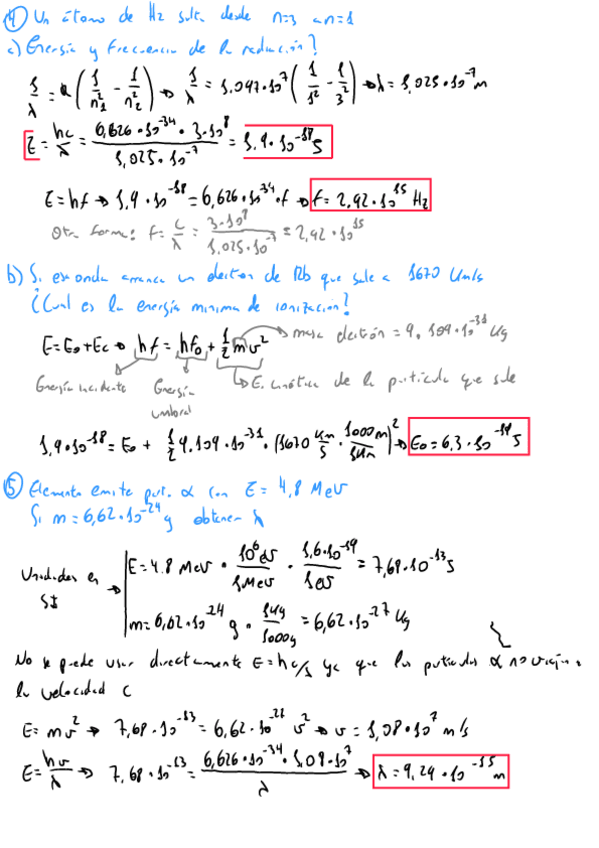 ④ Un átomo de H2 salta desde n=3 a n=1
a) Energía y frecuencia de la radiación?
1/λ = R (1/n₁² - 1/n₂²) → 1/λ = 1.097·10⁷ (1/1² - 1/3²) → λ = 1,025·10⁻⁷ m
E = hc/λ = 6,626·10⁻³⁴ · 3·10⁸ / 1,025·10⁻⁷ = 1,9·10⁻¹⁸ J
E = hf → 1,9·10⁻¹⁸ = 6,626·10⁻³⁴·f → f = 2,92·10¹⁵ Hz
Otra forma: f = c/λ = 3·10⁸ / 1,025·10⁻⁷ = 2,92·10¹⁵
b) Si esa onda arranca un electrón de Rb que sale a 1670 Km/s
¿Cual es la energía mínima de ionización?
E = E₀ + Ec → hf = hf₀ + 1/2 m v² → masa electrón = 9,109·10⁻³¹ Kg
Energía incidente Energía umbral E. cinética de la partícula que sale
1,9·10⁻¹⁸ = E₀ + 1/2 9,109·10⁻³¹ · (1670 Km/s · 1000m/1Km)² → E₀ = 6,3·10⁻¹⁹ J
⑤ Elemento emite part. α con E = 4,8 MeV
Si m = 6,62·10⁻²⁴ g obtener λ
Unidades en SI → E = 4.8 MeV · 10⁶ eV/1 MeV · 1,6·10⁻¹⁹/1 eV = 7,68·10⁻¹³ J
m = 6,62·10⁻²⁴ g · 1 Kg/1000g = 6,62·10⁻²⁷ Kg
No se puede usar directamente E = hc/λ ya que las partículas α no viajan a
la velocidad c
E = mv² → 7,68·10⁻¹³ = 6,62·10⁻²⁷ v² → v = 1,08·10⁷ m/s
E = hv/λ → 7,68·10⁻¹³ = 6,626·10⁻³⁴ · 1,08·10⁷ / λ → λ = 9,29·10⁻¹⁵ m